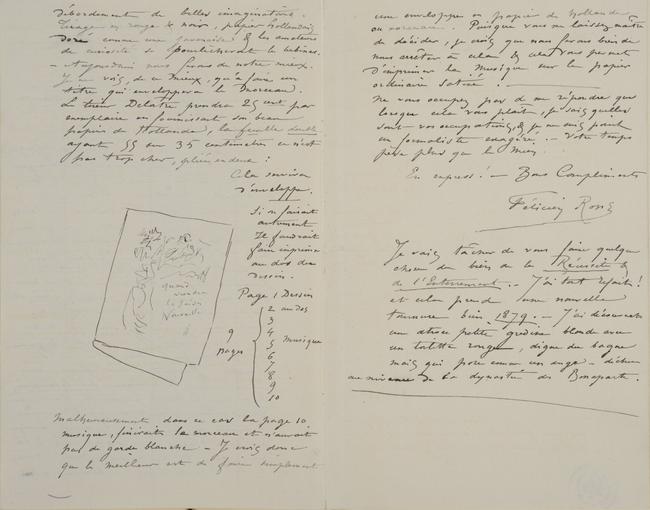 débordement de belles imaginations.
Tirage en rouge & noir, papier Hollandais
doré comme une & les amateurs
de curiosité se pourlècheront les babines.
– Aujourd'hui nous ferons de notre mieux.
Je ne vois, de ce mieux, qu'à faire un
titre qui enveloppera le morceau.
Le sieur Delâtre prendra 25 cent par
exemplaire en fournissant son beau
papier de Hollande, la feuille double
ayant 55 sur 35 centimètres ce n'est
pas trop cher, pliée en deux :
Cela servira
d'enveloppe.
Si on faisait
autrement
Il faudrait
faire imprimer
au dos du
Dessin.
quand
la saison
Nouvelle
9
Pages
Page 1 Dessin
2 au dos
3
4 Musique
5
6
7
8
9
10
Malheureusement dans ce cas la page 10
musique, finirait le morceau et n'aurait
pas de garde blanche – Je crois donc
que le meilleur est de faire simplement
une enveloppe en papier de Hollande
ou morceau. Puisque vous me laissez maître
de décider, je crois que nous ferons bien de
nous arrêter à cela & cela vous permet
d'imprimer la musique sur le papier
ordinaire satiné !
Ne vous occupez pas de me répondre que
lorsque cela vous plaît, je sais quelles
sont vos occupations, & je ne suis point
un formaliste enragé. – Votre temps
pèse plus que le mien.
En express ! – Bons Compliments
Félicien Rops
Je vais tâcher de vous faire quelque
chose de bien de la
de l'Enterrement. J'ai tout refait !
et cela prend une nouvelle
tournure bien 1879. – J'ai découvert
une petite blonde avec
un toilette rouge, digne du bagne
mais qui pose comme un ange –
au niveau de la dynastie des Bonaparte.